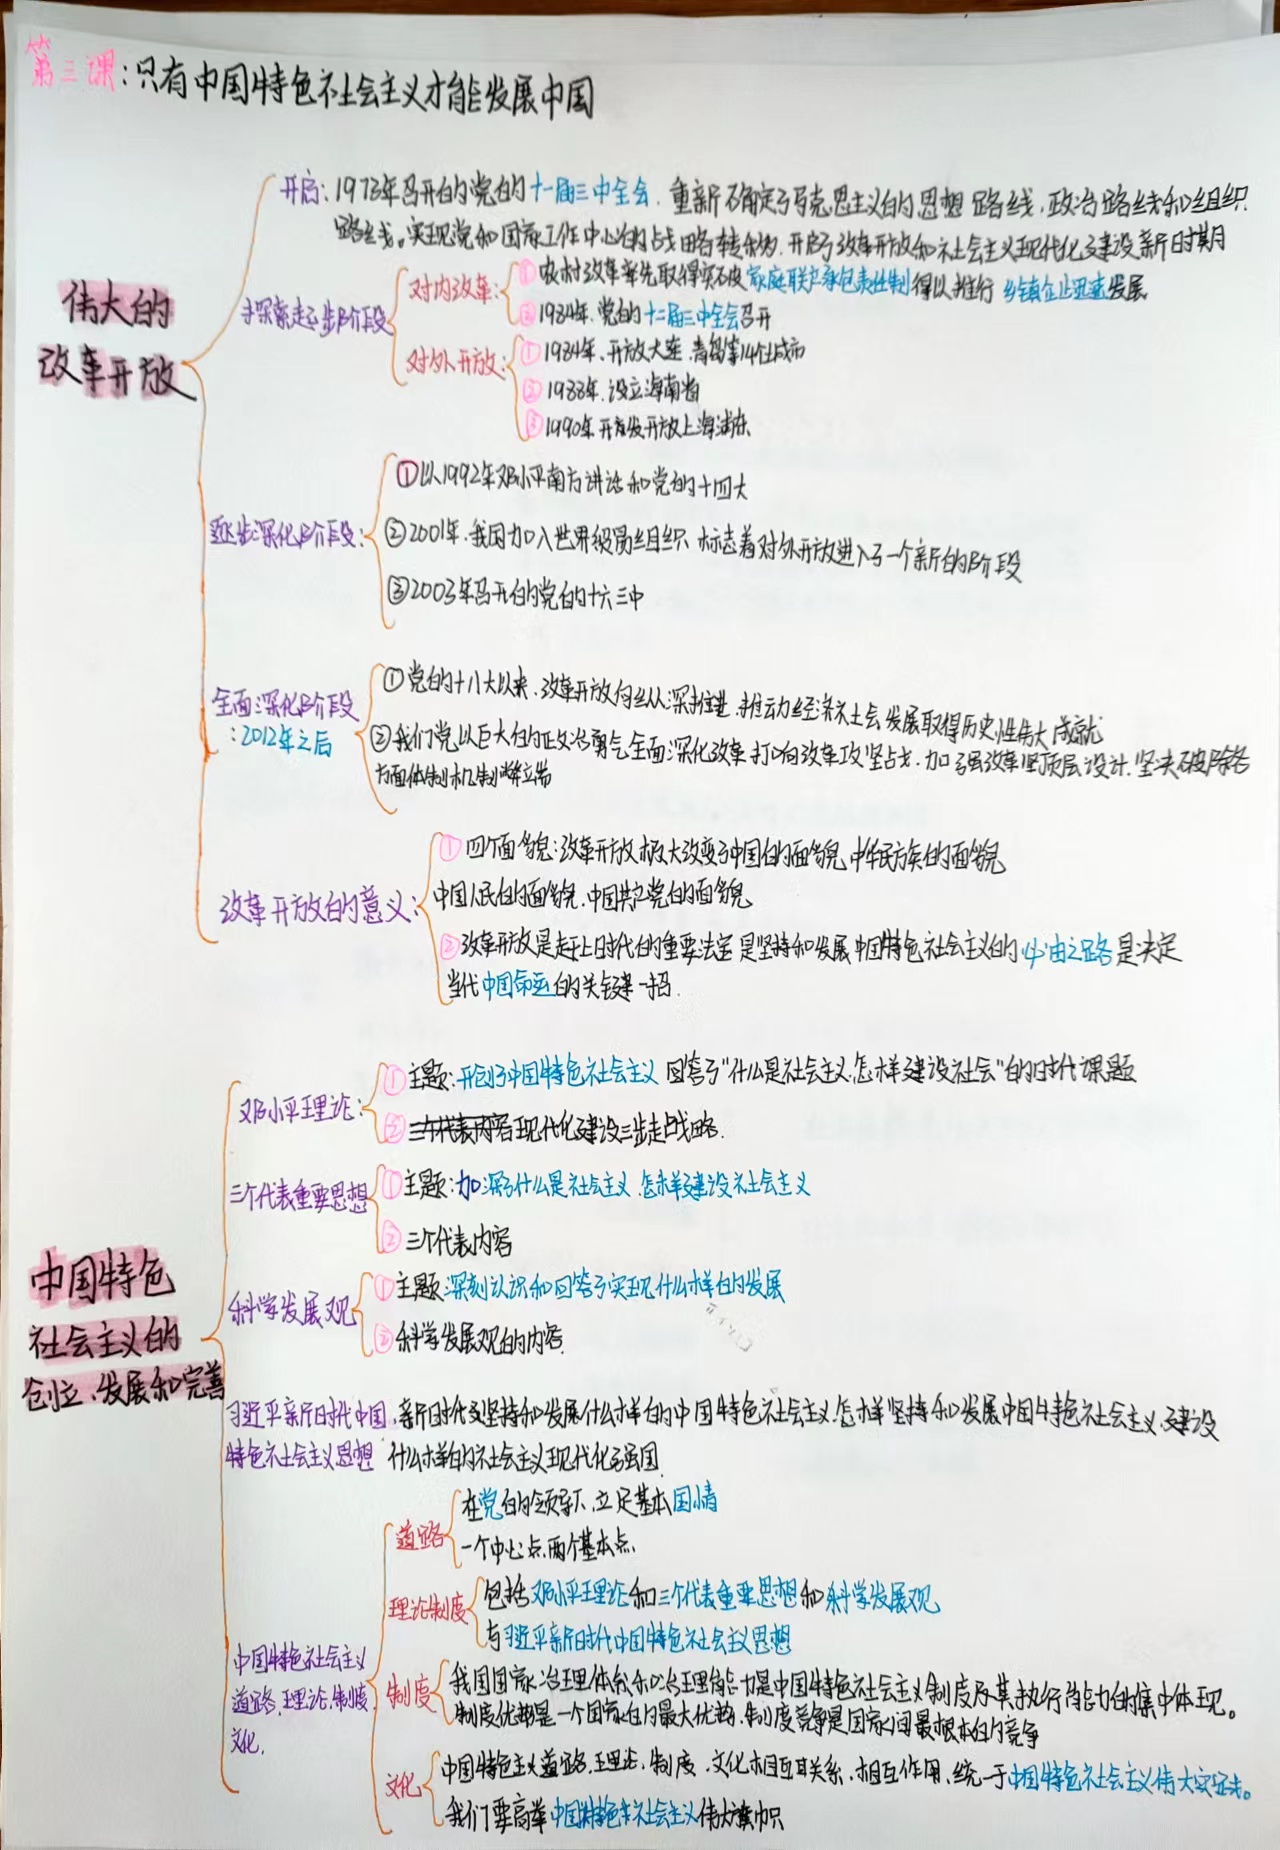 第三课:只有中国特色社会主义才能发展中国
伟大的
改革开放
开启:1978年召开的党的十一届三中全会.重新确定了马克思主义的思想路线,政治路线和组织
路线。实现党和国家工作中心的战略转移.开启了改革开放和社会主义现代化建设新时期
探索起步阶段
对内改革:
①农村改革率先取得突破家庭联产承包责任制得以推行乡镇企业迅速发展
②1984年.党的十二届三中全会召开
对外开放:
①1984年、开放大连.青岛等14个城市
②1988年.设立海南省
③1990年开发开放上海浦东
逐步深化阶段:
①以1992年邓小平南方讲话和党的十四大
②2001年.我国加入世界贸易组织 标志着对外开放进入了一个新的阶段
③2003年召开的党的十六三中
全面深化阶段
:2012年之后
①党的十八大以来.改革开放向纵深推进.推动经济社会发展取得历史性伟大成就
②我们党以巨大的政治勇气全面深化改革打响改革攻坚战.加强改革顶层设计.坚决破除各
方面体制机制弊端
改革开放的意义:
①四个面貌:改革开放极大改变了中国的面貌.中华民族的面貌
中国人民的面貌.中国共产党的面貌
②改革开放是赶上时代的重要法宝是坚持和发展中国特色社会主义的必由之路是决定
当代中国命运的关键一招.
中国特色
社会主义的
创立、发展和完善
邓小平理论:
①主题:开创了中国特色社会主义 回答了"什么是社会主义.怎样建设社会"的时代课题
②三个代表内容现代化建设三步走战略.
三个代表重要思想
①主题:加深了什么是社会主义.怎样建设社会主义
②三个代表内容
科学发展观
①主题:深刻认识和回答了实现什么样的发展
②科学发展观的内容.
习近平新时代中国
特色社会主义思想
新时代坚持和发展什么样的中国特色社会主义.怎样坚持和发展中国特色社会主义.建设
什么样的社会主义现代化强国.
中国特色社会主义
道路.理论.制度
文化.
道路
在党的领导下.立足基本国情
一个中心点.两个基本点.
理论制度
包括邓小平理论和三个代表重要思想和科学发展观
与习近平新时代中国特色社会主义思想
制度
我国国家治理体系和治理能力是中国特色社会主义制度及其执行能力的集中体现。
制度优势是一个国家的最大优势.制度竞争是国家间最根本的竞争
文化
中国特色主义道路.理论.制度.文化相互联系.相互作用.统一于中国特色社会主义伟大实践。
我们要高举中国特色社会主义伟大旗帜